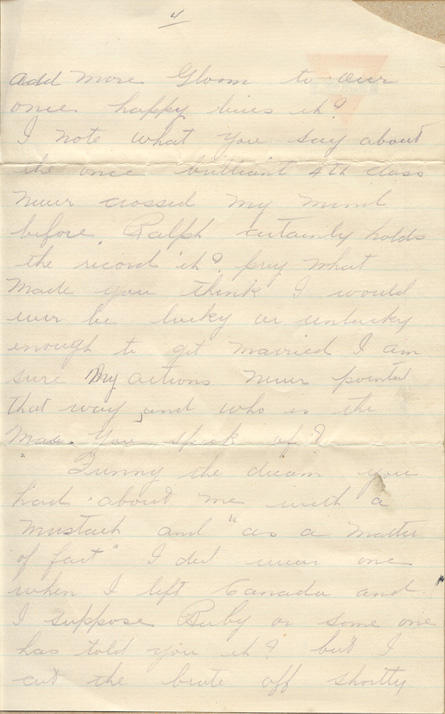 4
add more Gloom to our
once happy lives eh?
I note what you say about
the once brilliant 4th class
never crossed my mind
before. Ralph certainly holds
the record eh? pray what
made you think I would
ever be lucky or unlucky
enough to get married I am
sure My actions never pointed
that way, and who is the
Man you speak of?
"Funny the dream you
had about me with a
mustach and "as a matter
of fact" I did wear one
when I left Canada and
I suppose Ruby or some one
has told you eh? but I
cut the brute off shortly